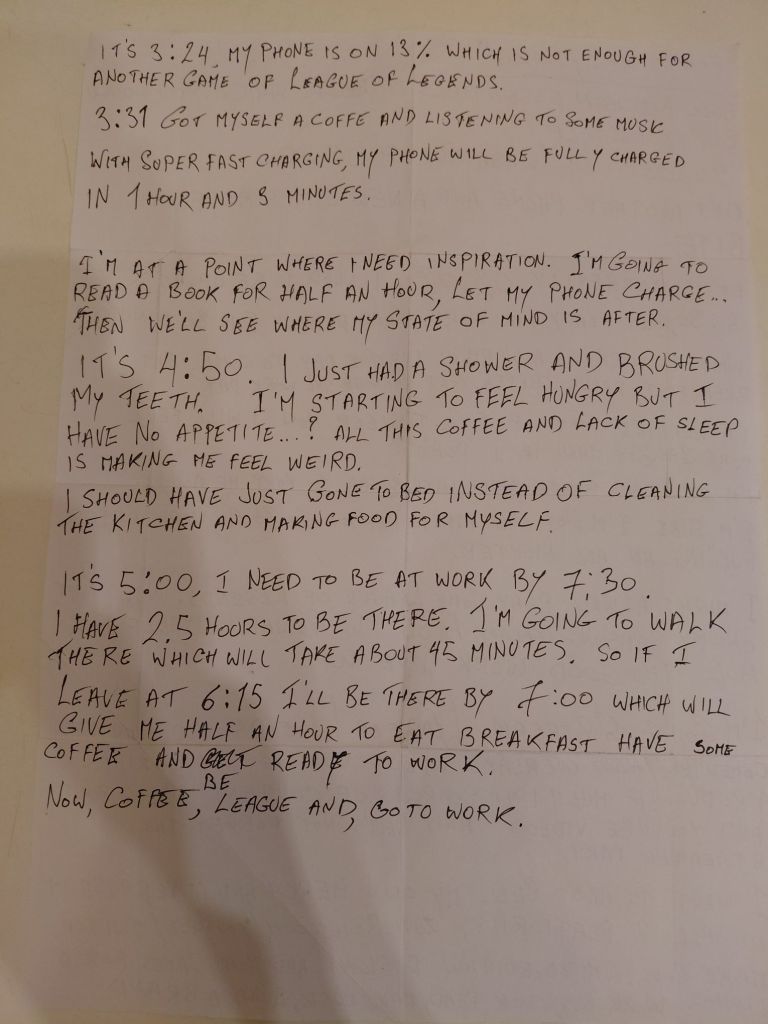 IT'S 3:24, MY PHONE IS ON 13% WHICH IS NOT ENOUGH FOR
ANOTHER GAME OF LEAGUE OF LEGENDS.
3:31 GOT MYSELF A COFFE AND LISTENING TO SOME MUSIC
WITH SUPER FAST CHARGING, MY PHONE WILL BE FULLY CHARGED
IN 1 HOUR AND 3 MINUTES.
I'M AT A POINT WHERE I NEED INSPIRATION. I'M GOING TO
READ A BOOK FOR HALF AN HOUR, LET MY PHONE CHARGE...
THEN WE'LL SEE WHERE MY STATE OF MIND IS AFTER.
IT'S 4:50. I JUST HAD A SHOWER AND BRUSHED
MY TEETH. I'M STARTING TO FEEL HUNGRY BUT I
HAVE NO APPETITE...? ALL THIS COFFEE AND LACK OF SLEEP
IS MAKING ME FEEL WEIRD.
I SHOULD HAVE JUST GONE TO BED INSTEAD OF CLEANING
THE KITCHEN AND MAKING FOOD FOR MYSELF.
IT'S 5:00, I NEED TO BE AT WORK BY 7:30.
I HAVE 2.5 HOURS TO BE THERE. I'M GOING TO WALK
THERE WHICH WILL TAKE ABOUT 45 MINUTES. SO IF I
LEAVE AT 6:15 I'LL BE THERE BY 7:00 WHICH WILL
GIVE ME HALF AN HOUR TO EAT BREAKFAST HAVE SOME
COFFEE AND BE READY TO WORK.
NOW, COFFEE, LEAGUE AND, GO TO WORK.